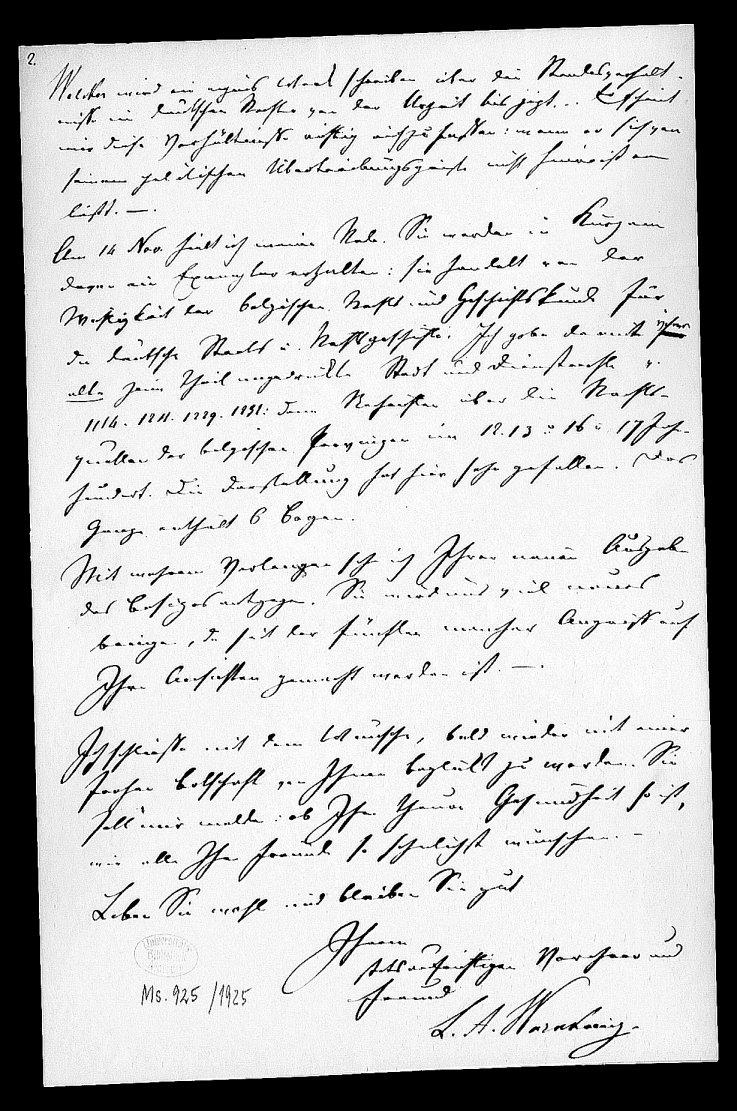 2.
Welcker wird ein eignes Werk schreiben über die Standesverhält-
nisse im deutschen Rechte von der Urzeit bis jezt... Er scheint
mir diese Verhältnisse richtig aufzufassen: wenn er sich von
seinem politischen Übertreibungsgeiste nicht hinreissen
läßt. —.
Am 14 Nov. hielt ich meine Rede. Sie werden in Kurzem
davon ein Exemplar erhalten: sie handelt von der
Wichtigkeit der belgischen Rechts- und Geschichtskunde für
die deutsche Staats u. Rechtsgeschichte. Ich gebe damit
alte zum Theil ungedruckte Stadt und Dienstrechte v.
1114. 1211. 1229. 1251: dann Nachrichten über die Rechts-
quellen der belgischen Provinzen im 12. 13 u 16 u. 17 Jahr-
hundert. Die Darstellung hat hier sehr gefallen. Das
Ganze enthält 6 Bogen.
Mit wahrem Verlangen seh ich Ihrer neuen Ausgabe
des Besizes entgegen. Sie wird uns viel neues
bringen, da seit der fünften mancher Angriff auf
Ihre Ansichten gemacht worden ist. —.
Ich schliesse mit dem Wunsche, bald wieder mit einer
frohen Botschaft von Ihnen beglükt zu werden. Sie
soll mir melden: ob Ihre theure Gesundheit so ist,
wie alle Ihre Freunde so sehnlichst wünschen. —
Leben Sie wohl und bleiben Sie gut
Ihrem
stets aufrichtigen Verehrer und
Freund
L. A. Warnkönig.
Ms. 925 / 1925